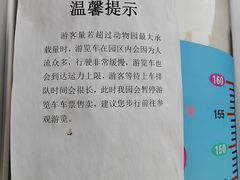 温馨提示
游客量若超过动物园最大承
载量时，游览车在园区内会因为人
流众多，行驶非常缓慢，游览车也
会到达运力上限，游客等待上车排
队时间会很长，此时我园会暂停游
览车车票售卖，建议您步行前往参
观游览。
160
155
150